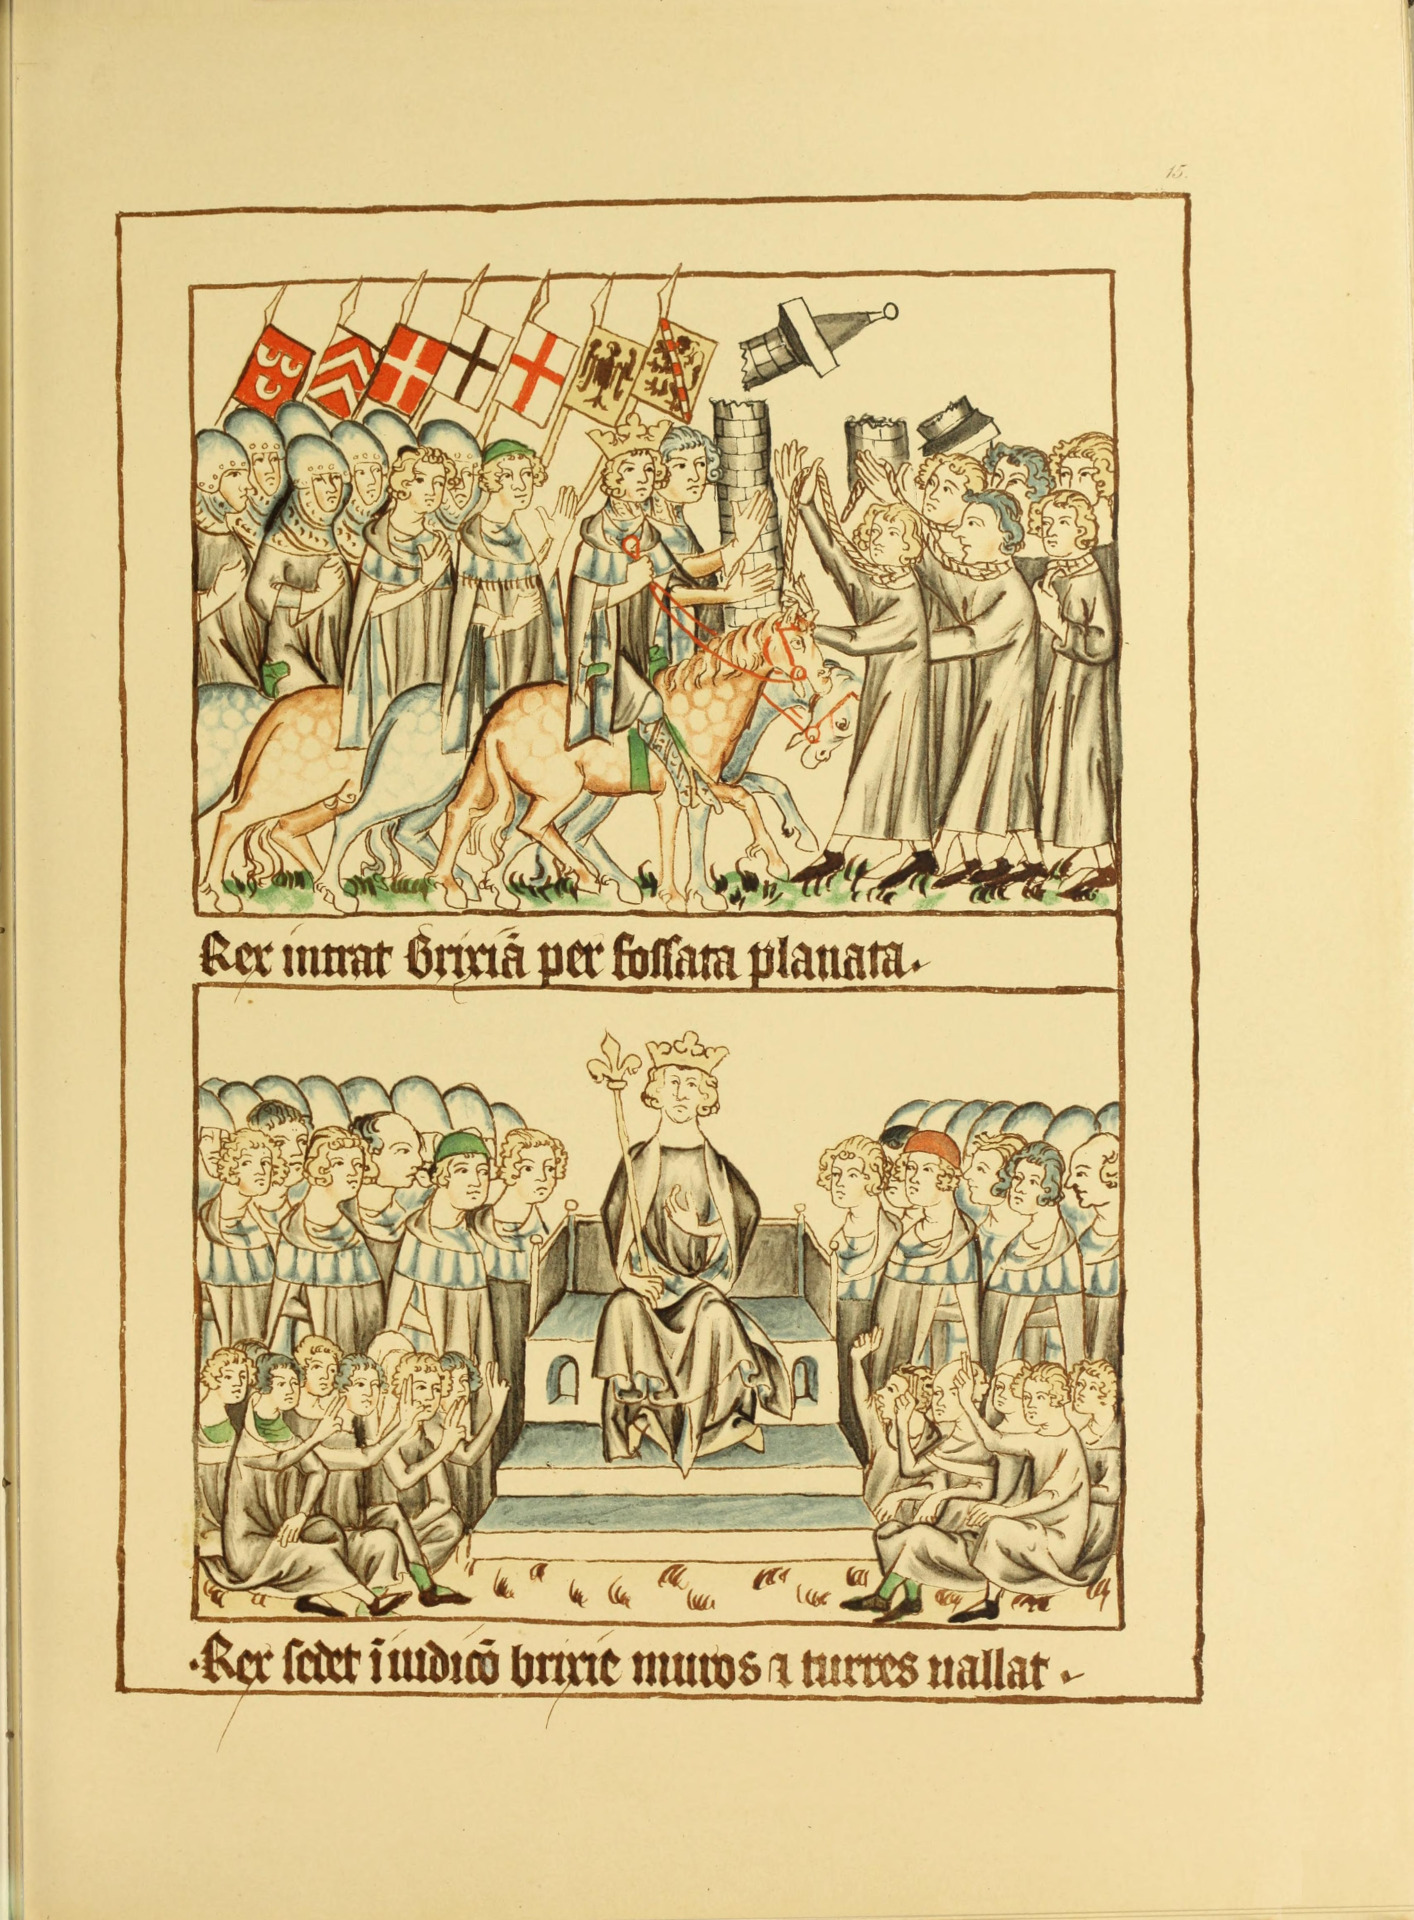 15.
Rex intrat Brixiā per fossata planata.
·Rex sedet ī iudicō brixie muros ⁊ turres uallat·